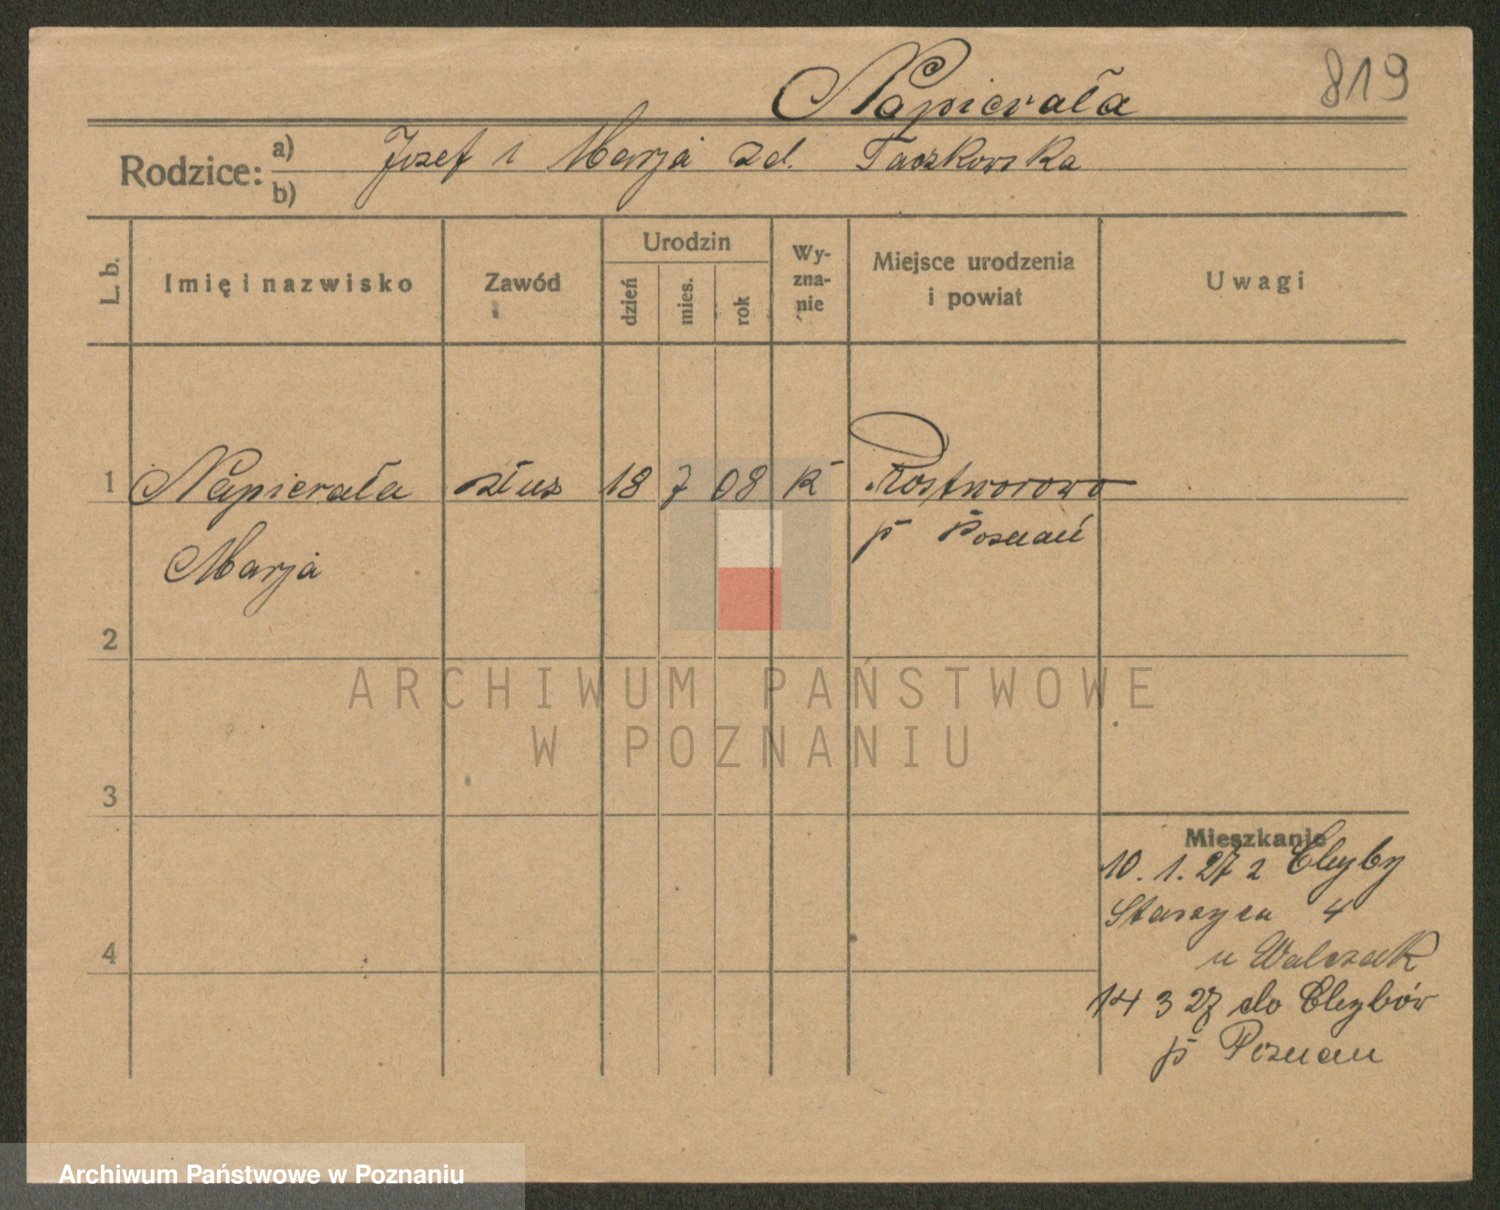 Napierała 819
Rodzice: a) Józef i Marja zd. Taczkowska
b)
L. b. Imię i nazwisko Zawód Urodzin dzień mies. rok Wy-zna-nie Miejsce urodzenia i powiat Uwagi
1 Napierała służ 18 7 08 k Rostworowo
Marja p Poznań
2
3
4
Mieszkanie
10. 1. 27 z
Staszyca 4
u Walczak
14 3 27 do
p Poznań
ARCHIWUM PAŃSTWOWE
W POZNANIU
Archiwum Państwowe w Poznaniu